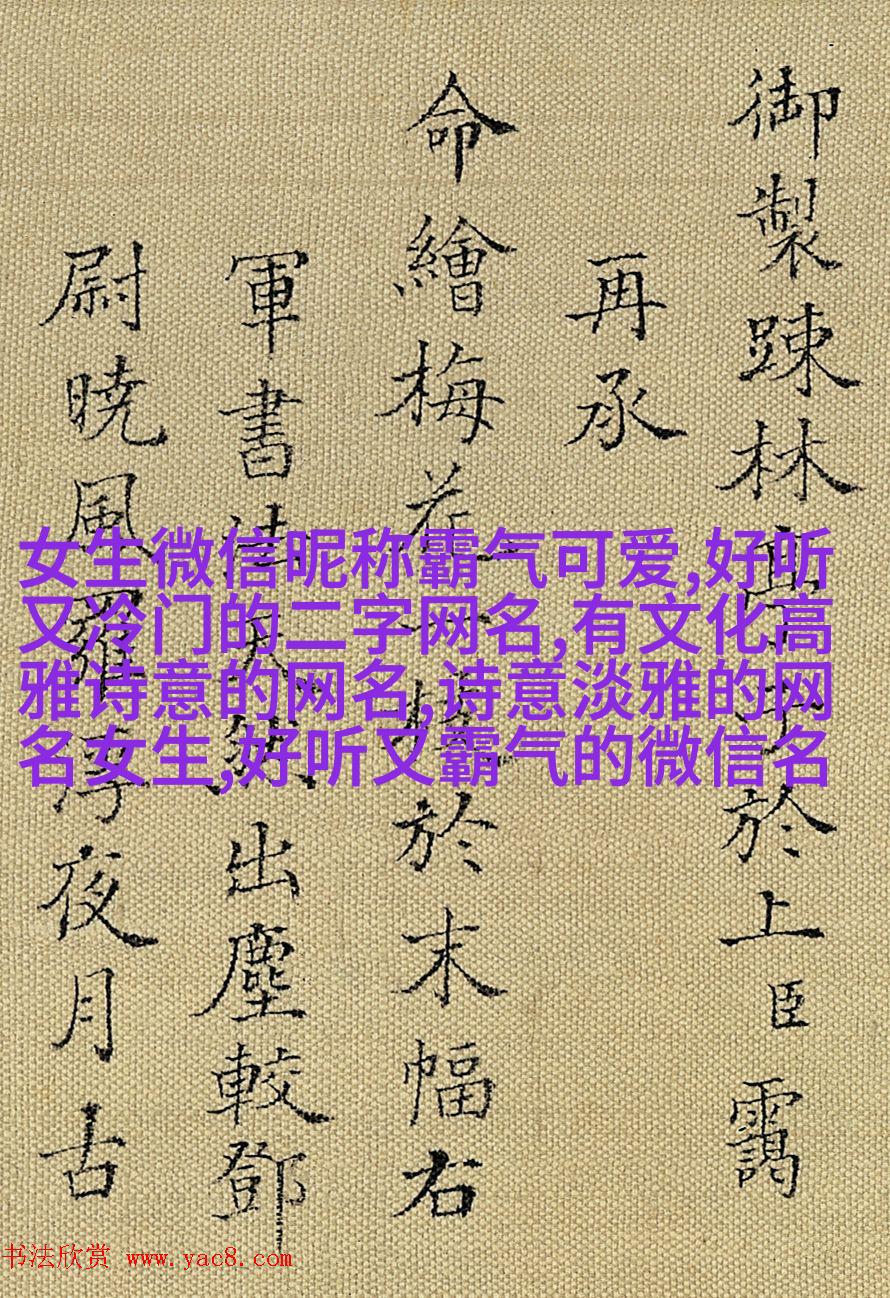 御製踈林於上臣靄
再承
命繪梅花於末幅右
軍書出塵較鄧
尉暁風羅浮夜月古
女生微信呢称霸气可爱,好听
又冷门的二字网名,有文化高
雅诗意的网名,诗意淡雅的网
名女生,好听又霸气的微信名
书法欣赏 www.yac8.com